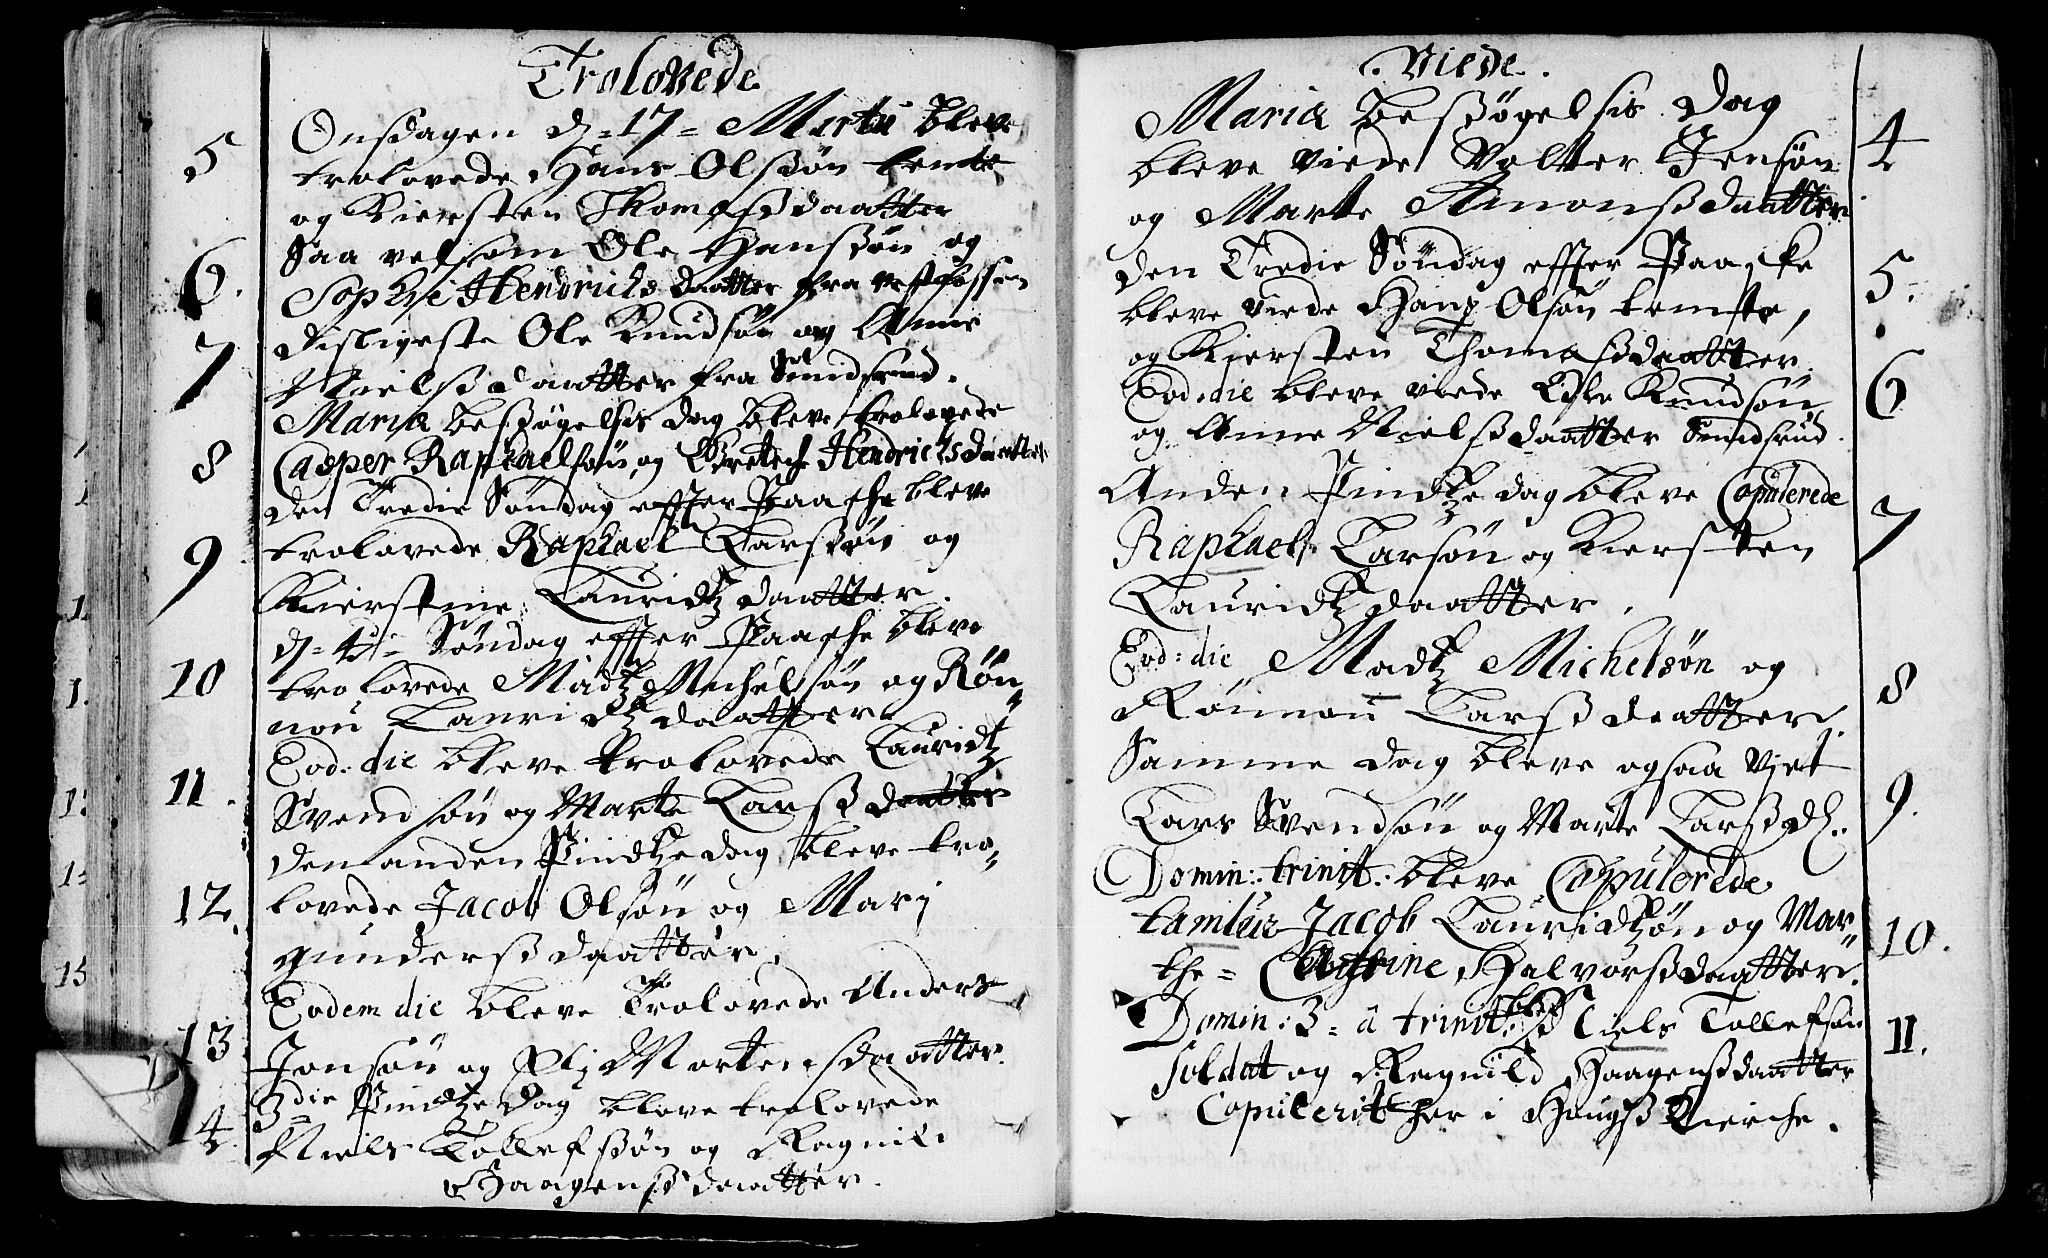 Trolovede
5 Onsdagen d. 17 Martii bleve
trolovede Hans Olssøn temte
og Kiersten Thomæssdaatter
6. Saa vel som Ole Hanssøn og
Sophie Hendrichsdaatter fra vestfossen
7 disligeste Ole Knudsøn og Anne
Nielssdaatter fra Smidsrud.
Mariæ besøgelsis dag bleve trolovede
8 Casper Raphaelsøn og Hendrichsdaatter
den Tredie Søndag effter Paasche bleve
9 trolovede Raphael Larssøn og
Kierstine Lauridtzdaatter.
d. 4de Søndag effter Paasche bleve
10 trolovede Madtz Michelsøn og Røn„
nou Lauridtzdaatter
Eod: die bleve trolovede Lauridtz
11. Svendsøn og Marte Larssdaatter
den anden Pindtzedag bleve tro„
12. lovede Jacob Olsøn og Mari
gunderssdaatter.
Eodem die bleve Trolovede Anders
13 Jonsøn og Eli Mortensdaatter.
3die Pindtze dag bleve trolovede
14. Niels Tollefssøn og Ragnil
Haagenssdaatter.
Viede.
Mariæ besøgelsis dag
bleve viede Volter Jensøn 4
og Marte Amonssdaatter.
den Tredie Søndag effter Paaske 5.
bleve viede Hans Olsøn temte,
og Kiersten Thomæssdaatter.
Eod: die bleve viede Ole Knudsøn 6
og Anne Nielssdaatter Smidsrud.
Anden Pindtzedag bleve Copulerede
Raphael Larsøn og Kiersten 7
Lauridtzdaatter.
Eod: die Madtz Michelsøn og
Rønnou Larssdaatter. 8
Samme dag bleve ogsaa viet
Lars Svendsøn og Marte Larssd. 9.
Domin: trinit: bleve Copulerede
Jacob Lauridtzøn og Mar„ 10.
the = Cathrine Halvorssdaatter.
Domin: 3 = à trinit: blef Niels Tollefsøn 11.
Soldat og Ragnild Haagenssdaatter
Copulerit her i Haugss Kierche.